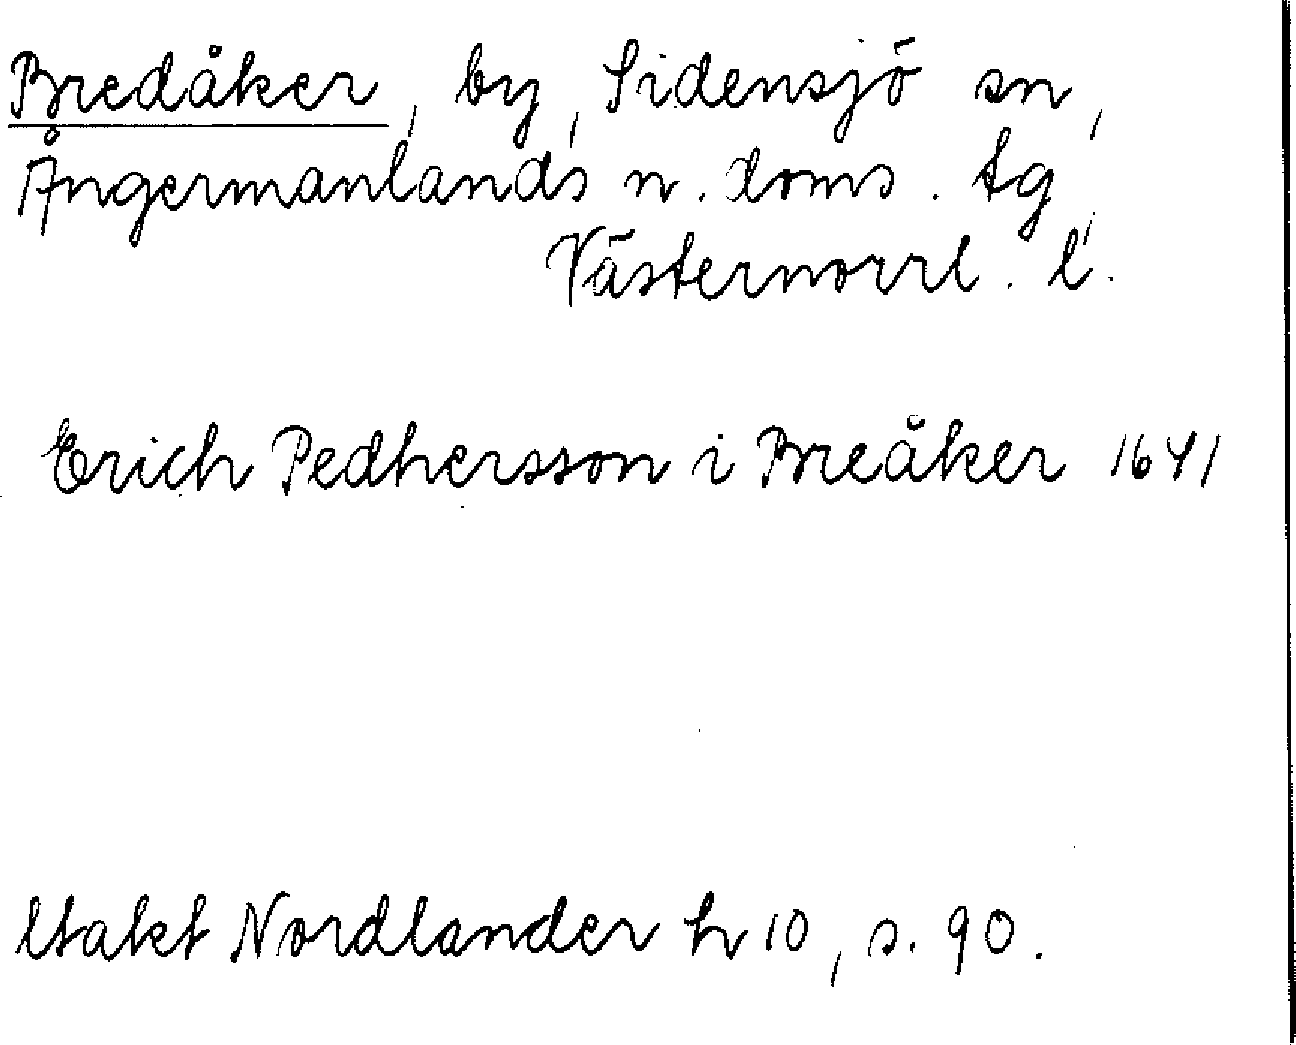 Bredåker, by, Sidensjö sn,
Ångermanlands n. doms. tg,
Västernorrl. l.
Erich Pedhersson i Breåker 1641
Utakt Nordlander h 10, s. 90.